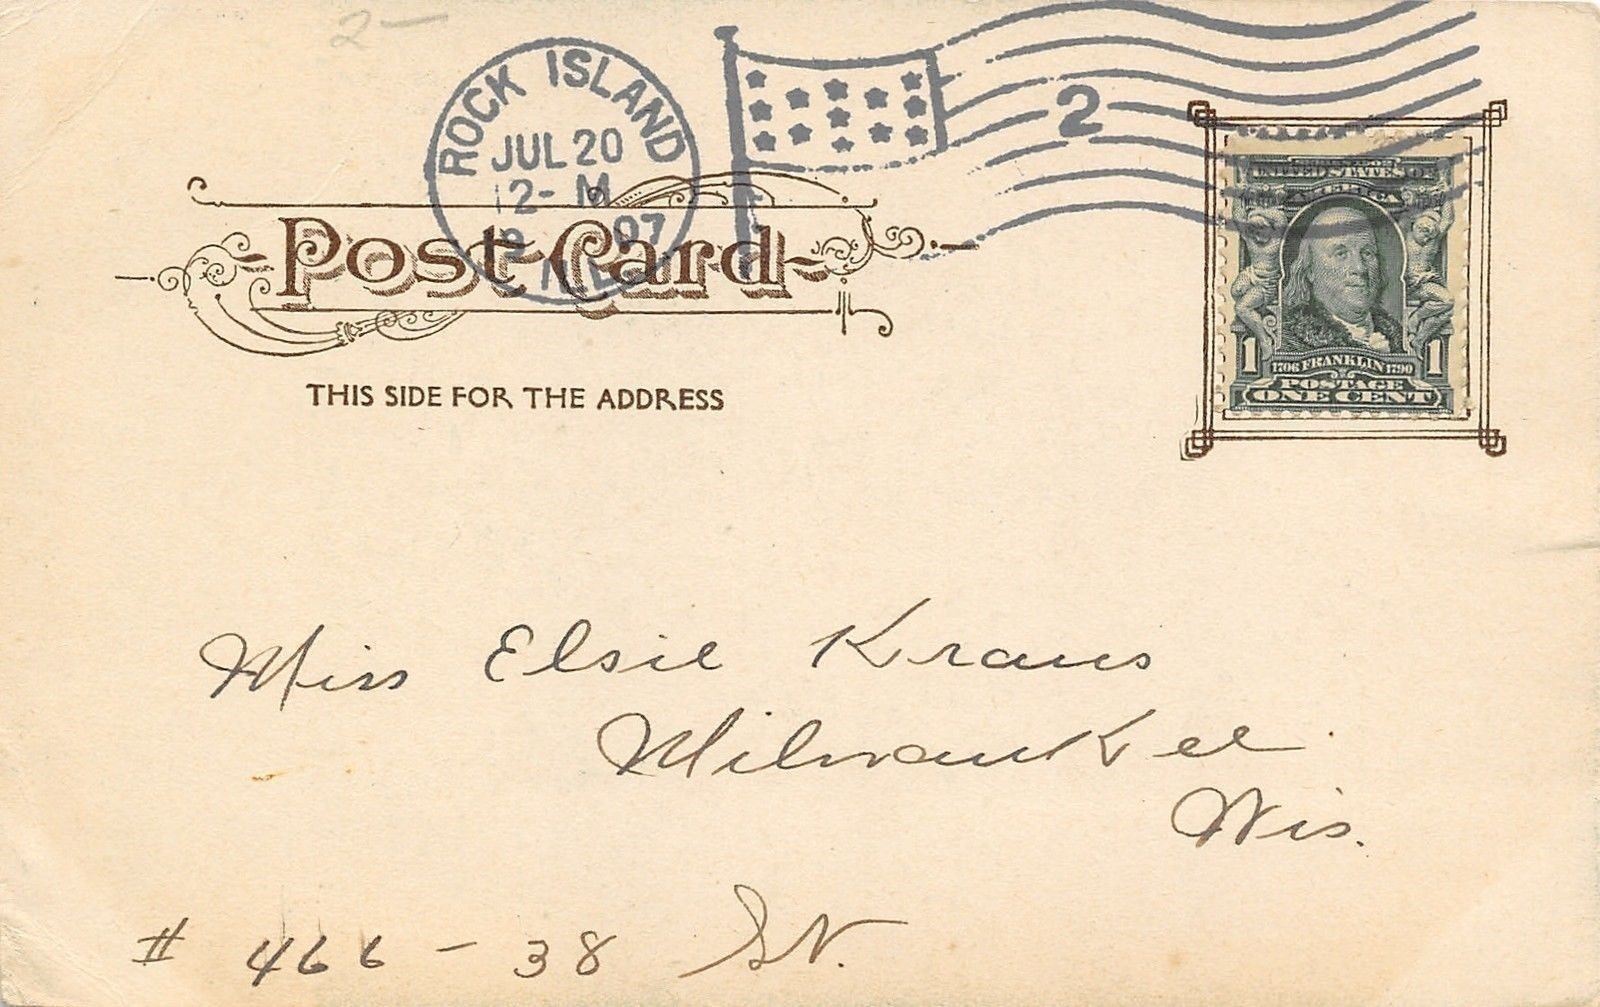 2-
ROCK ISLAND
JUL 20
12-M
07
ILL.
2
UNITED STATES OF
AMERICA
1 1706 FRANKLIN 1790 1
POSTAGE
ONE CENT
Post Card
THIS SIDE FOR THE ADDRESS
Miss Elsie Kraus
Milwaukee
Wis.
# 466 - 38 St.